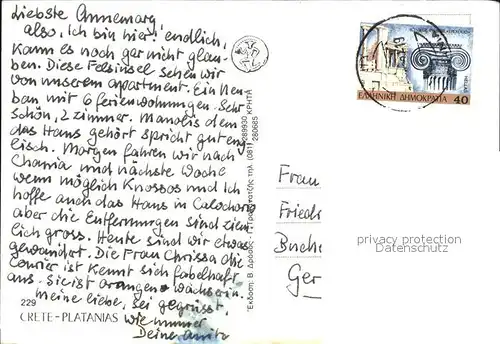 Liebste Annemarg,
also, Ich bin hier! endlich,
Kann es noch gar nicht glau-
ben. Diese Felsinsel sehen wir
von unserem apartment. Ein Neu
bau mit 6 ferienwohnungen. Sehr
schön, 2 zimmer. Manolis dem
das Haus gehört spricht gut eng
lisch. Morgen fahren wir nach
Chania und nächste Woche
wenn möglich Knossos und Ich
hoffe auch das Haus in
aber die Entfernungen sind ziem
lich gross. Heute sind wir etwas
gewandert. Die Frau Chrissa die
Courier ist Kennt sich fabelhaft
aus. Sie ist
meine liebe, sei gegrüsst,
wie immer
Deine
229
CRETE-PLATANIAS
289930 ΚΡΗΤΗ
280665
ΕΛΛΗΝΙΚΗ ΔΗΜΟΚΡΑΤΙΑ 40
HELLAS
Frau
Friedr
Buche
Ger
privacy protection
Datenschutz